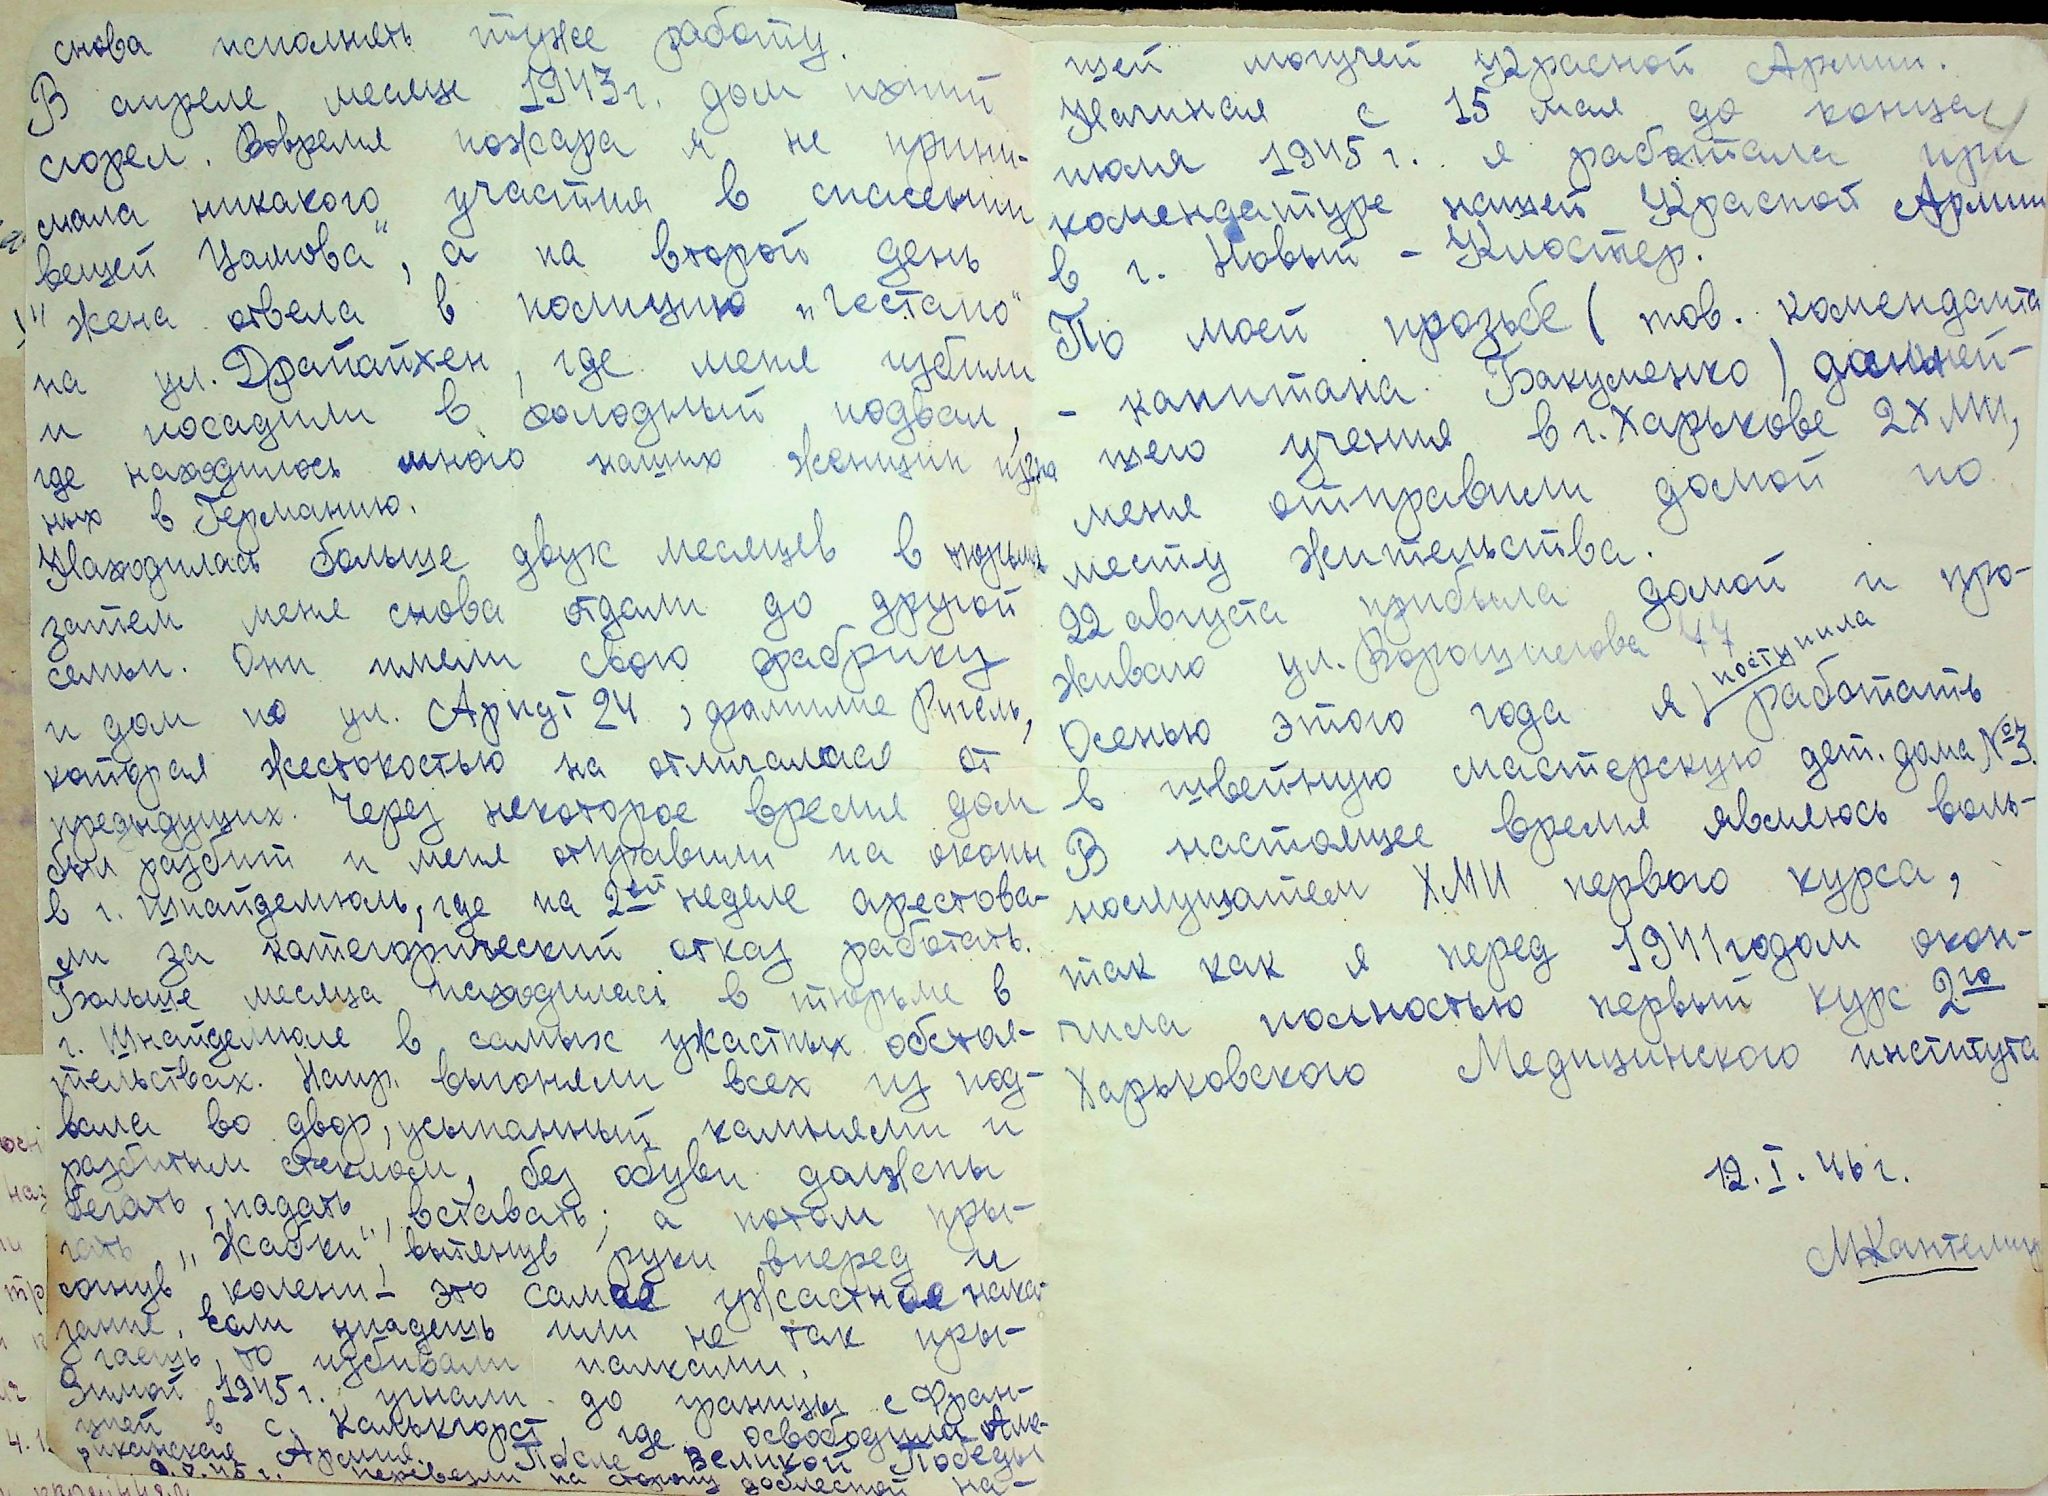 снова исполнять туже работу.
В апреле месяце 1943 г. дом ихний
сгорел. Вовремя пожара я не прини-
мала никакого участия в спасении
вещей Цамова", а на второй день
" жена отвела в полицию „гестапо"
на ул. Драйайхен, где меня избили
и посадили в холодный подвал,
где находилось много наших женщин
ных в Германию.
Находилась больше двух месяцев в тюрьме
затем меня снова отдали до другой
семьи. Они имели свою фабрику
и дом по ул. Арндт 24, фамилие Ригель,
которая жестокостью на отличалася от
предыдущих. Через некоторое время дом
был разбит и меня отправили на окопы
в г. Шнайдемюль, где на 2ей неделе арестова-
ли за категорический отказ работать.
Больше месяца находилась в тюрьме в
г. Шнайдемюле в самых ужастных обстоя-
тельствах. Напр. выгоняли всех из под-
вала во двор, усыпанный камнями и
разбитым стеклом, без обуви должны
бегать, падать, вставать; а потом пры-
гать „Жабки", вытянув руки вперед и
согнув колени – это самое ужастное нака-
зание, если упадешь или не так пры-
гаешь, то избивали палками.
Зимой 1945 г. угнали до границы с Фран-
цией в с. Калькгорст, где освободила Аме-
риканская Армия. После Великой Победы
9.V.45 г. перевезли на сторону доблестной на-
шей могучей Красной Армии.
Начиная с 15 мая до конца
июля 1945 г. я работала при
комендатуре нашей Красной Армии
в г. Новый – Клостер.
По моей прозьбе (тов. коменданта
– капитана Бакуменко) дальней-
шего учения в г. Харькове 2ХМИ,
меня отправили домой по
месту жительства.
22 августа прибыла домой и про-
живаю ул. Ворошилова 77
Осенью этого года я поступила работать
в швейную мастерскую дет. дома №3.
В настоящее время являюсь воль-
нослушателем ХМИ первого курса,
так как я перед 1941 годом окон-
чила полностью первый курс 2го
Харьковского Медицинского института
12.I.46 г.
МКантемир